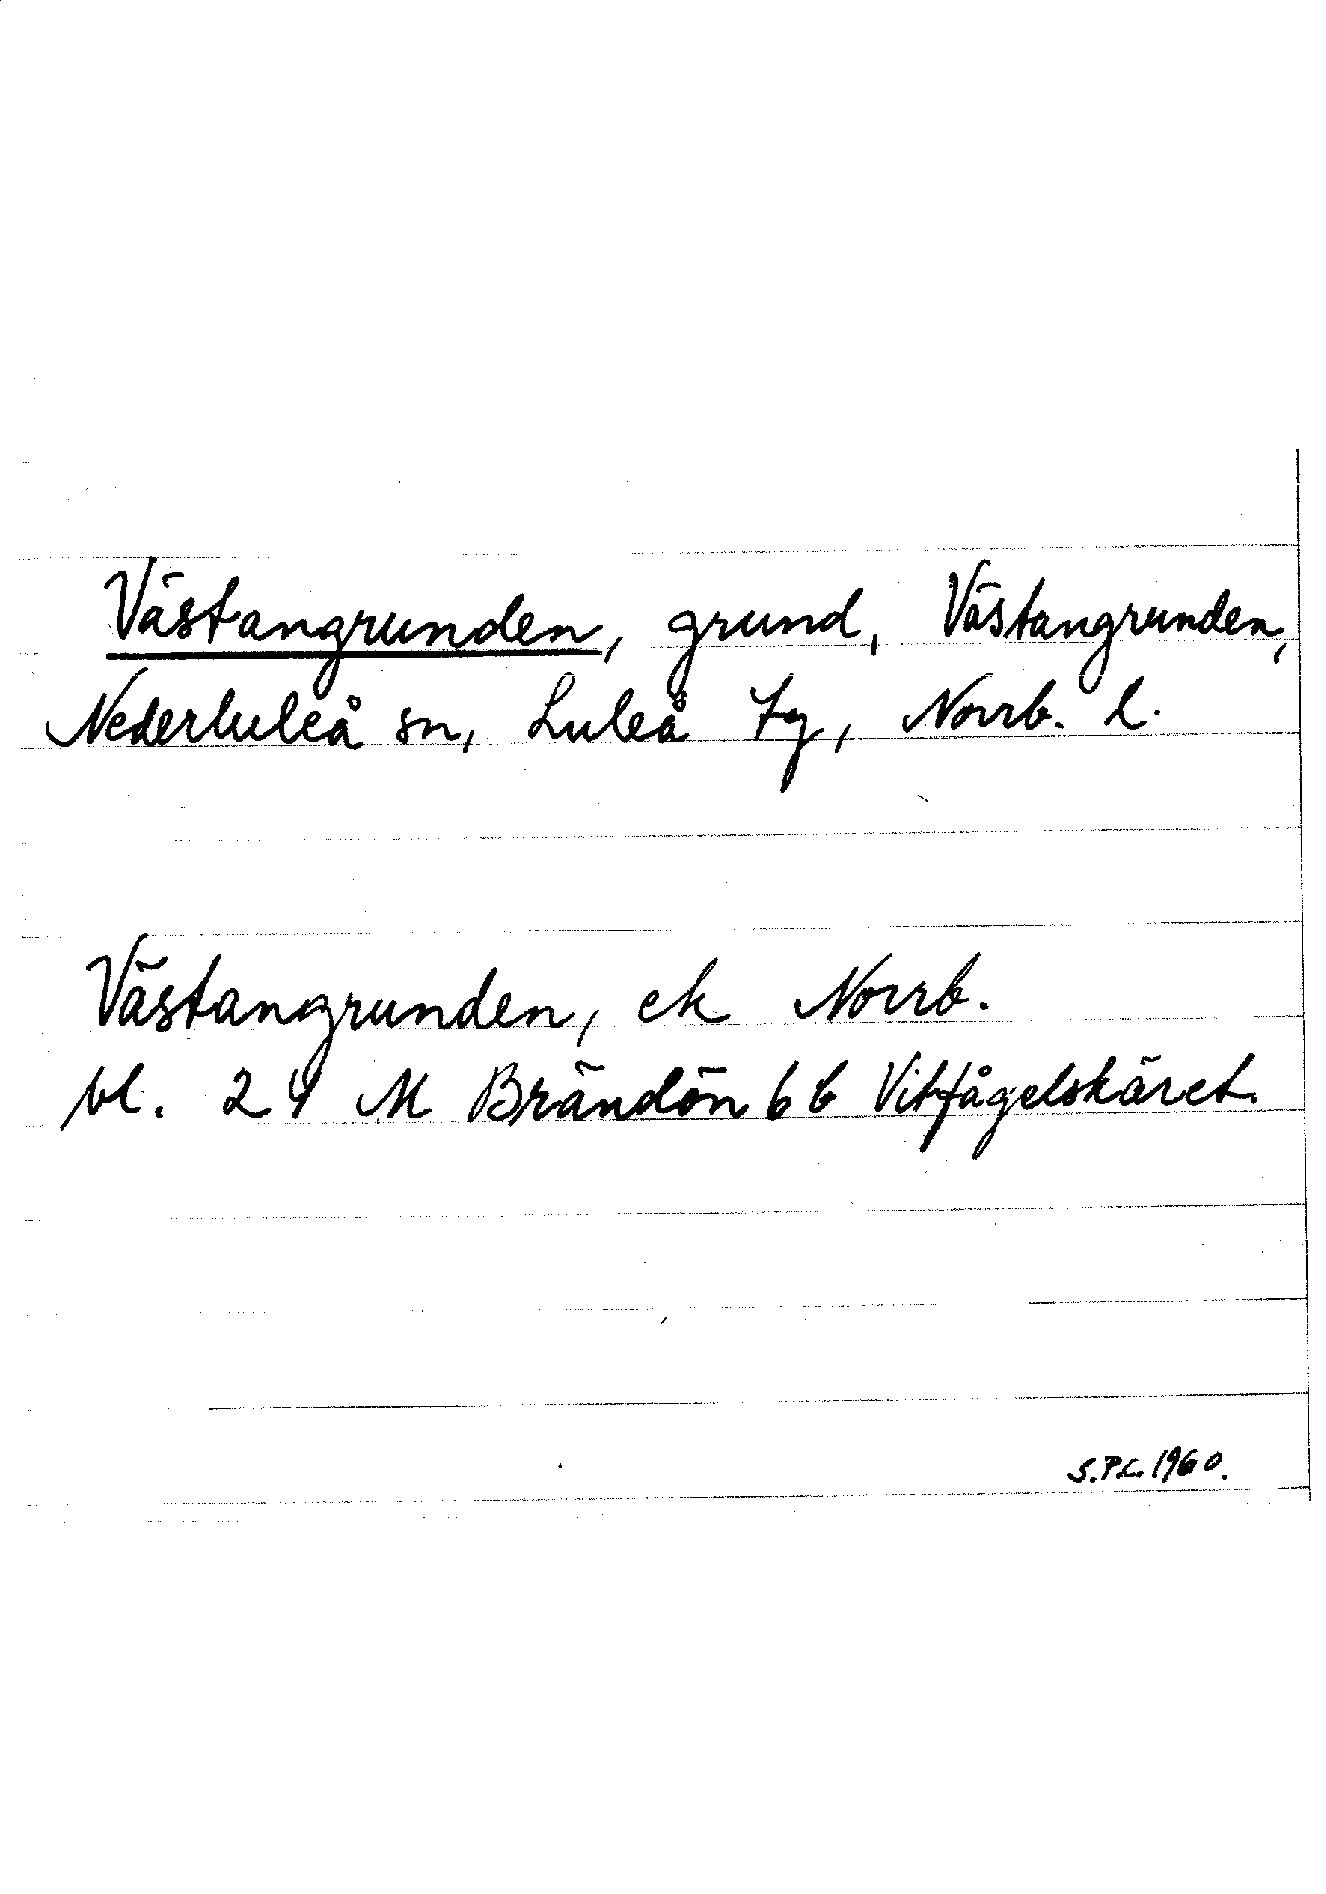 Västangrunden, grund, Västangrunden,
Nederluleå sn, Luleå tg, Norrb. l.
Västangrunden, ek Norrb.
bl. 24 M Brändön 6 b Vitfågelskäret.
S.P.L. 1960.